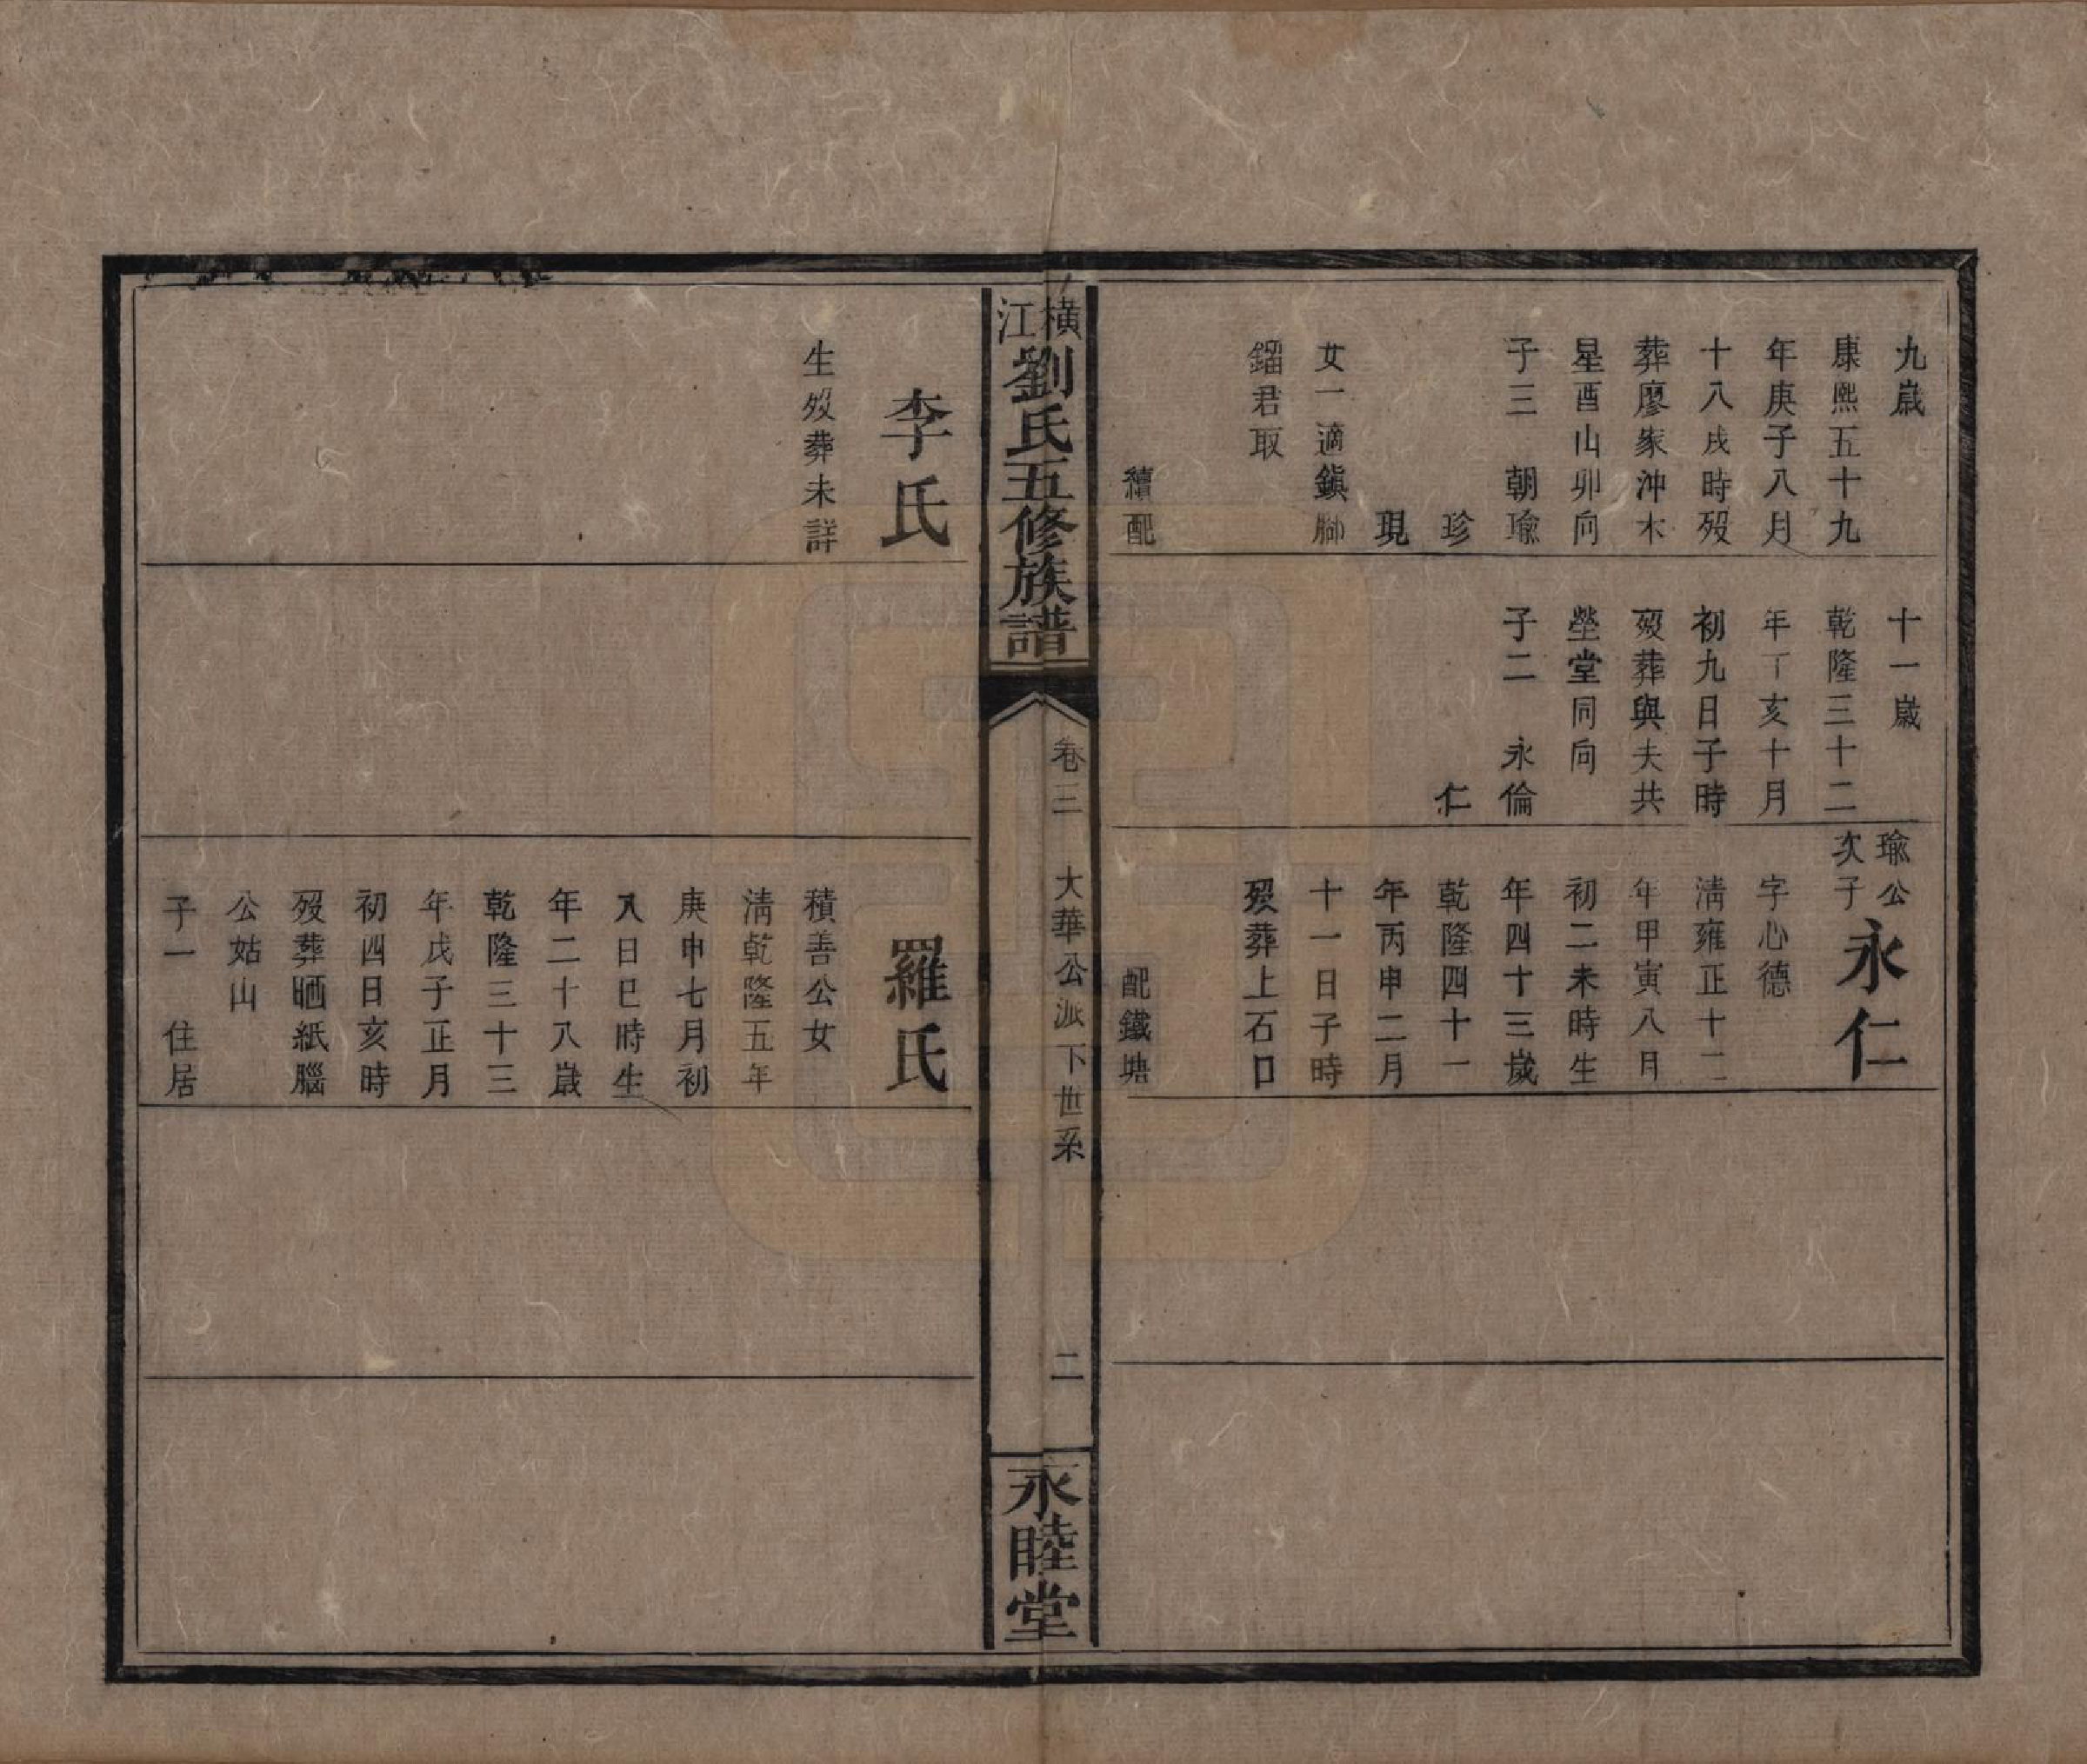 九歲
康熙五十九
年庚子八月
十八戌時歿
葬廖家沖木
星酉山卯向
子三　朝瑜
珍
現
女一適鎮
鎦君取
續配
十一歲
乾隆三十二
年丁亥十月
初九日子時
歿葬與夫共
塋堂同向
子二　永倫
仁
瑜公
次子
永仁
字心德
淸雍正十二
年甲寅八月
初二未時生
年四十三歲
乾隆四十一
年丙申二月
十一日子時
歿葬上石口
配鐵塘
橫江劉氏五修族譜
卷三　大華公派下世系
二
永睦堂
李氏
生歿葬未詳
羅氏
積善公女
淸乾隆五年
庚申七月初
八日巳時生
年二十八歲
乾隆三十三
年戊子正月
初四日亥時
歿葬晒紙腦
公姑山
子一　住居